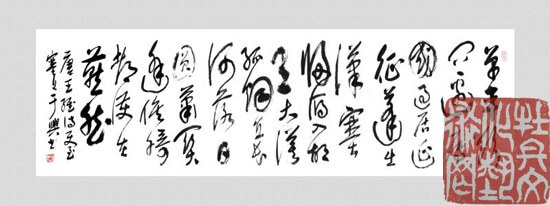 單車
問邊
國過居延
征蓬出
漢塞
歸雁入胡
天大漠
孤烟直長
河落日
圓蕭関
逢候騎
都護在
燕然
唐王維詩使至
塞上于興書